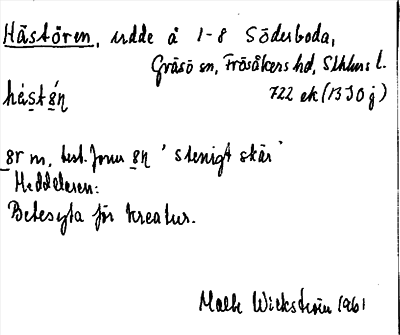 Hästören, udde å 1-8 Söderboda,
Gräsö sn, Frösåkers hd, Sthlms l.
722 ek (13 I 0 j)
hást ǿn
ør m, best. form øn 'stenigt skär'
Meddelaren:
Betesyta för kreatur.
Wickström 1961